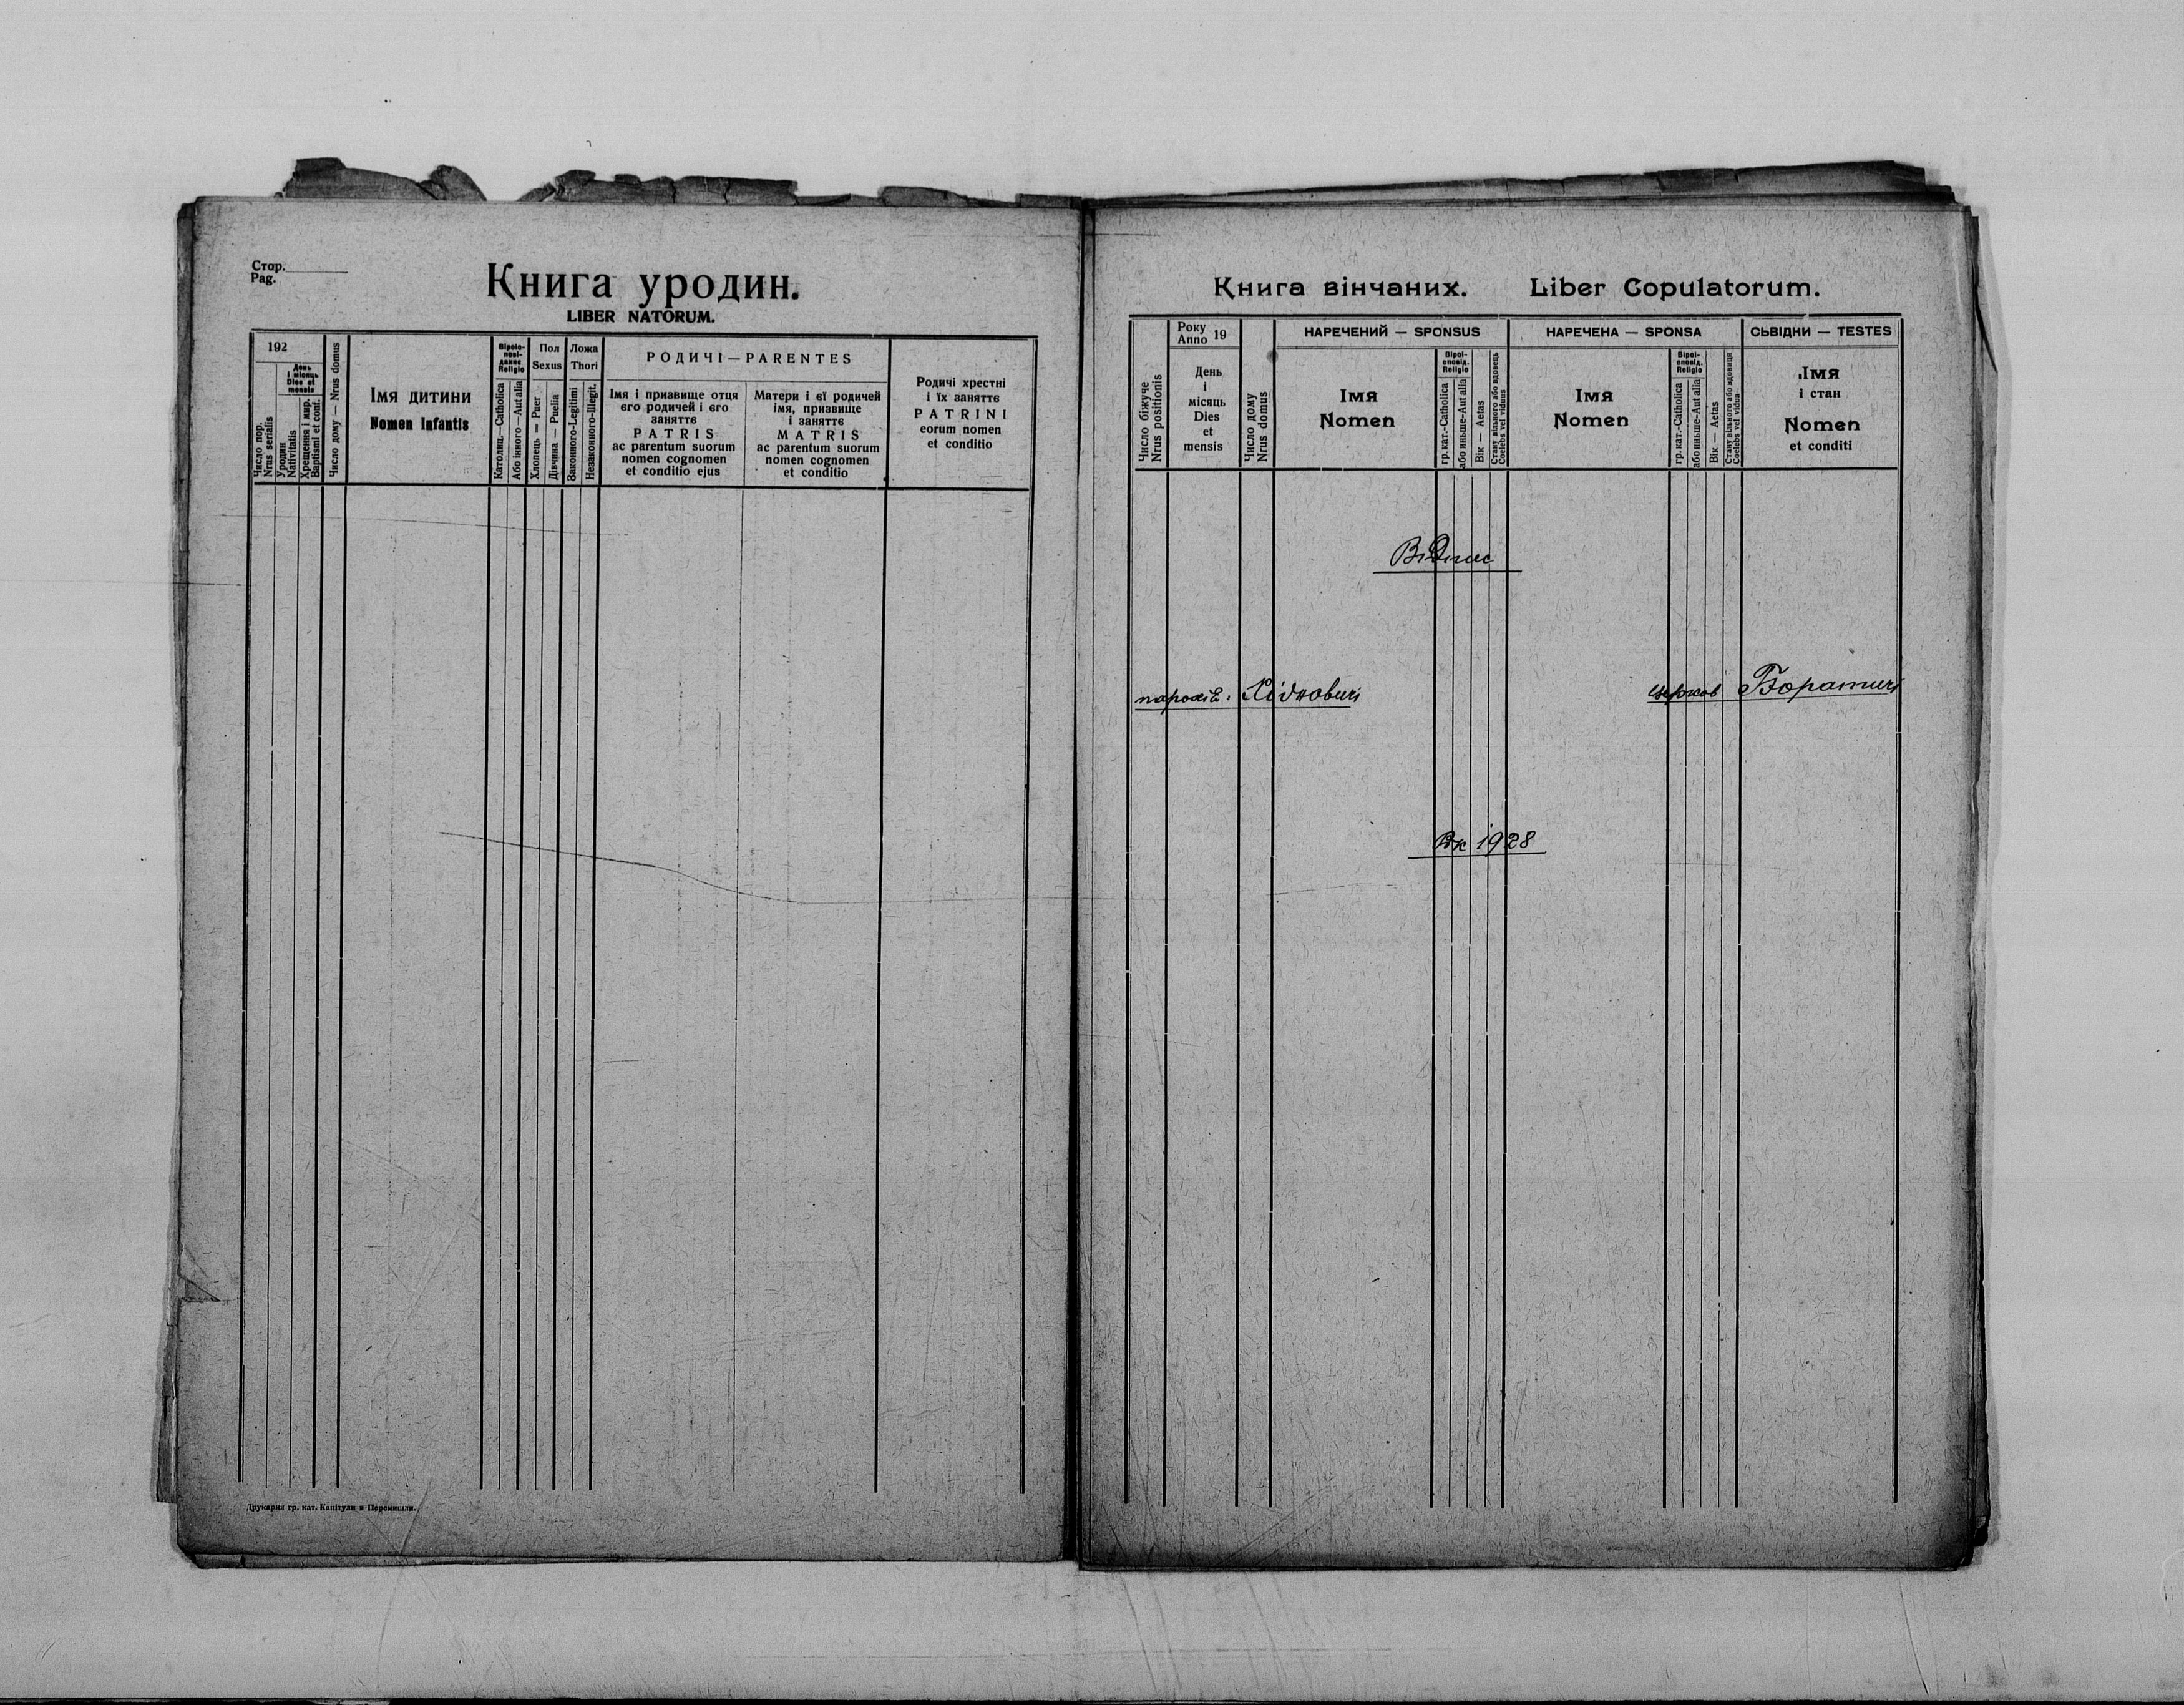 Стор.
Pag.
Книга уродин.
LIBER NATORUM.
192
Число пор.
Nrus serialis
День
і місяць
Dies et
mensis
Уродин
Nativitatis
Хрещення і мир.
Baptismi et conf.
Число дому — Nrus domus
Імя дитини
Nomen Infantis
Віроіс-
пові-
данне
Religio
Католиц.—Catholica
Або інного—Aut alia
Пол
Sexus
Хлопець — Puer
Дівчина — Puella
Ложа
Thori
Законного-Legitimi
Незаконного-Illegit.
РОДИЧІ—PARENTES
Імя і призвище отця
єго родичей і єго
заняттє
PATRIS
ac parentum suorum
nomen cognomen
et conditio ejus
Матери і єї родичей
імя, призвище
і заняттє
MATRIS
ac parentum suorum
nomen cognomen
et conditio
Родичі хрестні
і їх заняттє
PATRINI
eorum nomen
et conditio
Друкарня гр. кат. Капітули в Перемишли.
Книга вінчаних. Liber Copulatorum.
Число біжуче
Nrus positionis
Року
Anno 19
День
і
місяць
Dies
et
mensis
Число дому
Nrus domus
НАРЕЧЕНИЙ — SPONSUS
Імя
Nomen
Віроі-
сповід.
Religio
гр. кат.-Catholica
або иньше-Aut alia
Вік — Aetas
Стану вільного або вдовець
Coelebs vel viduus
НАРЕЧЕНА — SPONSA
Імя
Nomen
Віроі-
сповід.
Religio
гр. кат.-Catholica
або иньше-Aut alia
Вік — Aetas
Стану вільного або вдовиця
Coelebs vel vidua
СЬВІДКИ — TESTES
Імя
і стан
Nomen
et conditi
Відпис
парохія: Хідновичі
церков Боратичі
Рік 1928